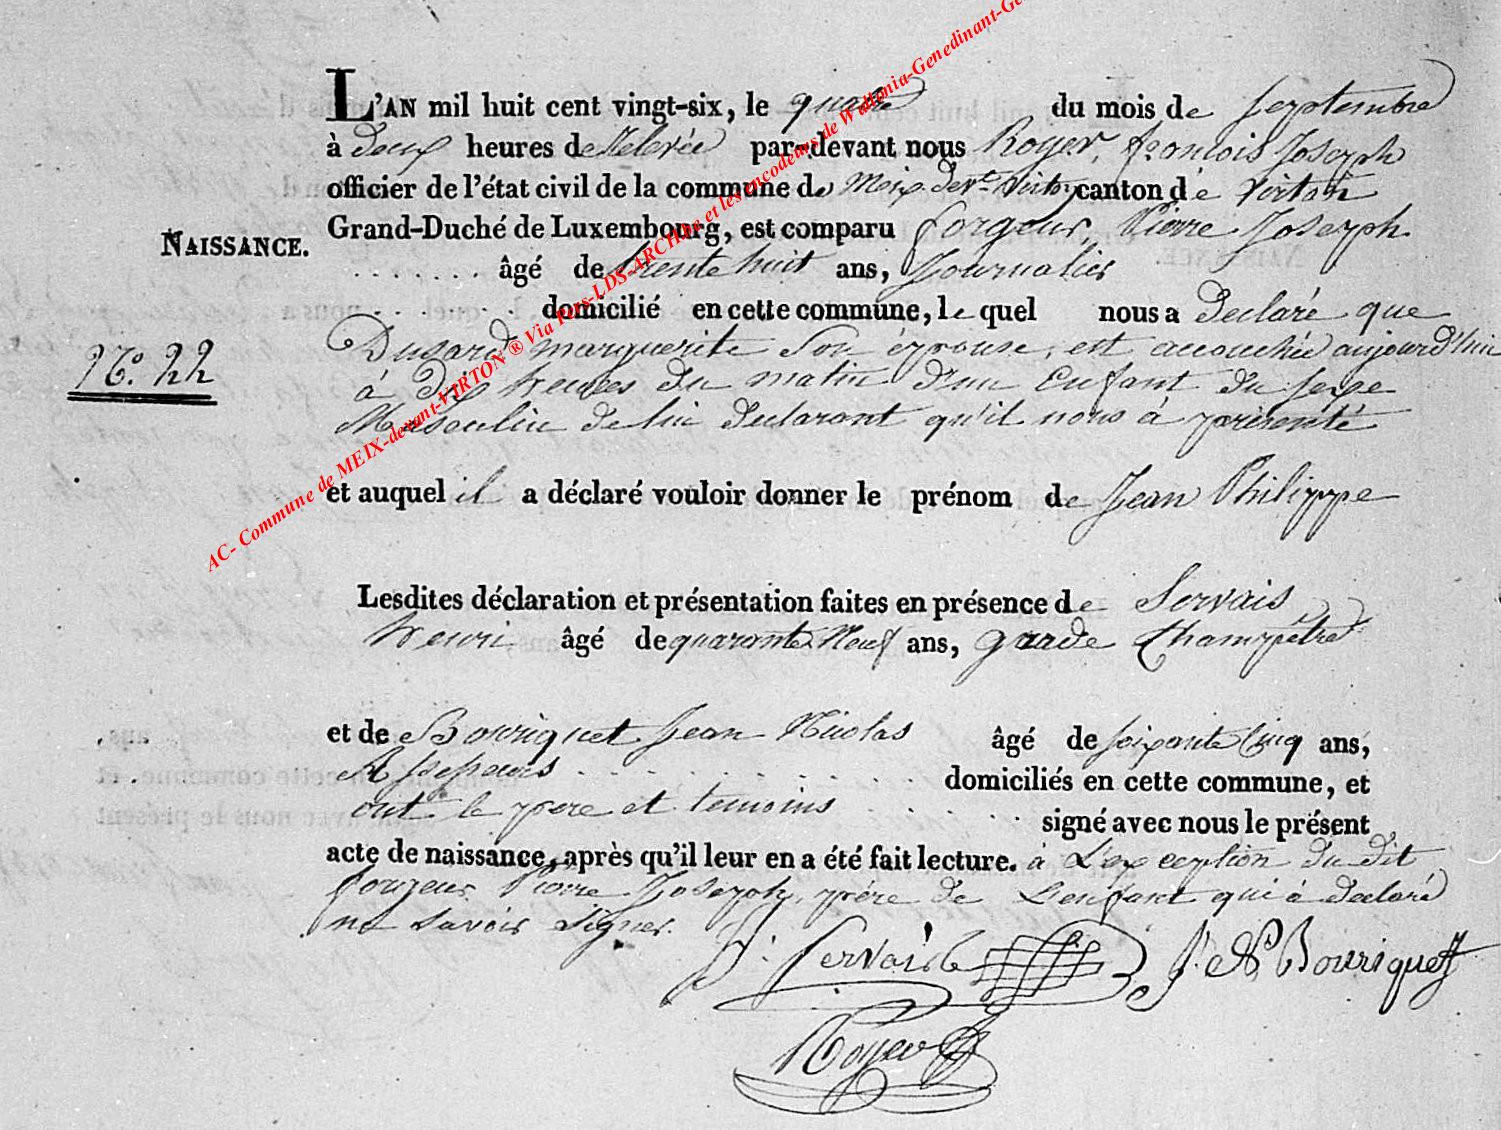 L'AN mil huit cent vingt-six, le quatre du mois de septembre
à deux heures de relevée par-devant nous Royer, françois Joseph
officier de l'état civil de la commune de Meix devt. Virton canton de Virton
Grand-Duché de Luxembourg, est comparu forgeur, Pierre Joseph
NAISSANCE.
âgé de trente huit ans, Journalier
domicilié en cette commune, le quel nous a declaré que
No. 22
Dusard marguerite Son épouse, est accouchée aujourd'hui
à dix heures du matin d'un Enfant du sexe
Masculin de lui declarant qu'il nous à présenté
et auquel il a déclaré vouloir donner le prénom de Jean Philippe
Lesdites déclaration et présentation faites en présence de Servais
henri âgé de quarante Neuf ans, garde Champêtre
et de Bouriquet Jean Nicolas âgé de soixante Cinq ans,
Assesseur domiciliés en cette commune, et
ont le pere et temoins signé avec nous le présent
acte de naissance, après qu'il leur en a été fait lecture. à L'exception du dit
forgeur Pierre Joseph, pére de L'enfant qui à declaré
ne savoir signer.
h. Servais J. N. Bouriquet
Royer
AC- Commune de MEIX-devant-VIRTON ® Via Pers-LDS-ARCHive et les encodeurs de Wallonia-Genedinant-Ge